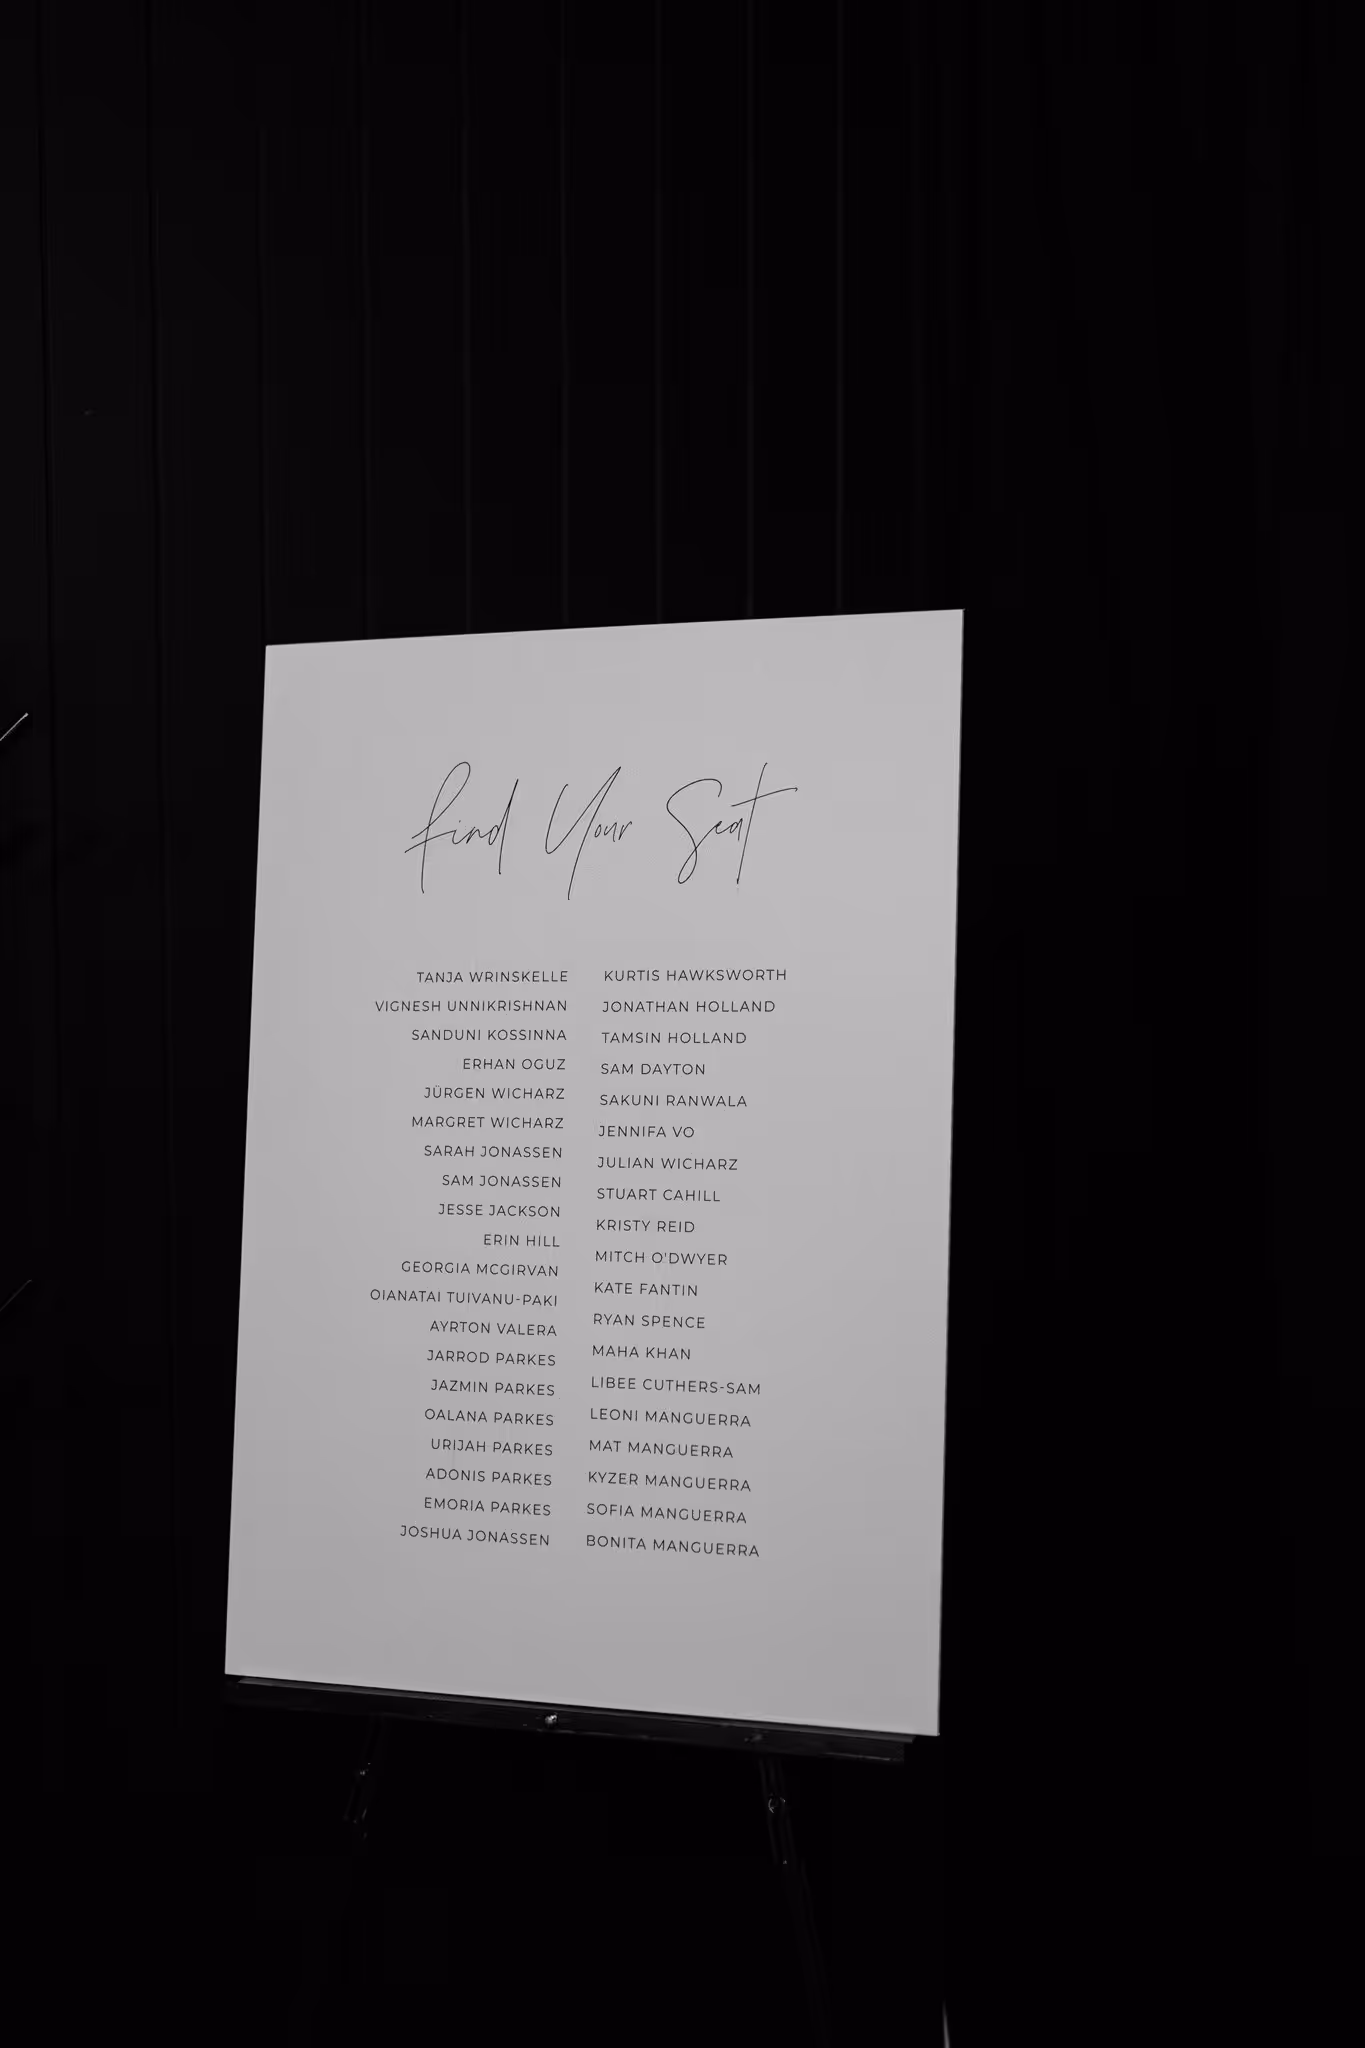 Find Your Seat
TANJA WRINSKELLE
VIGNESH UNNIKRISHNAN
SANDUNI KOSSINNA
ERHAN OGUZ
JÜRGEN WICHARZ
MARGRET WICHARZ
SARAH JONASSEN
SAM JONASSEN
JESSE JACKSON
ERIN HILL
GEORGIA MCGIRVAN
OIANATAI TUIVANU-PAKI
AYRTON VALERA
JARROD PARKES
JAZMIN PARKES
OALANA PARKES
URIJAH PARKES
ADONIS PARKES
EMORIA PARKES
JOSHUA JONASSEN
KURTIS HAWKSWORTH
JONATHAN HOLLAND
TAMSIN HOLLAND
SAM DAYTON
SAKUNI RANWALA
JENNIFA VO
JULIAN WICHARZ
STUART CAHILL
KRISTY REID
MITCH O'DWYER
KATE FANTIN
RYAN SPENCE
MAHA KHAN
LIBEE CUTHERS-SAM
LEONI MANGUERRA
MAT MANGUERRA
KYZER MANGUERRA
SOFIA MANGUERRA
BONITA MANGUERRA